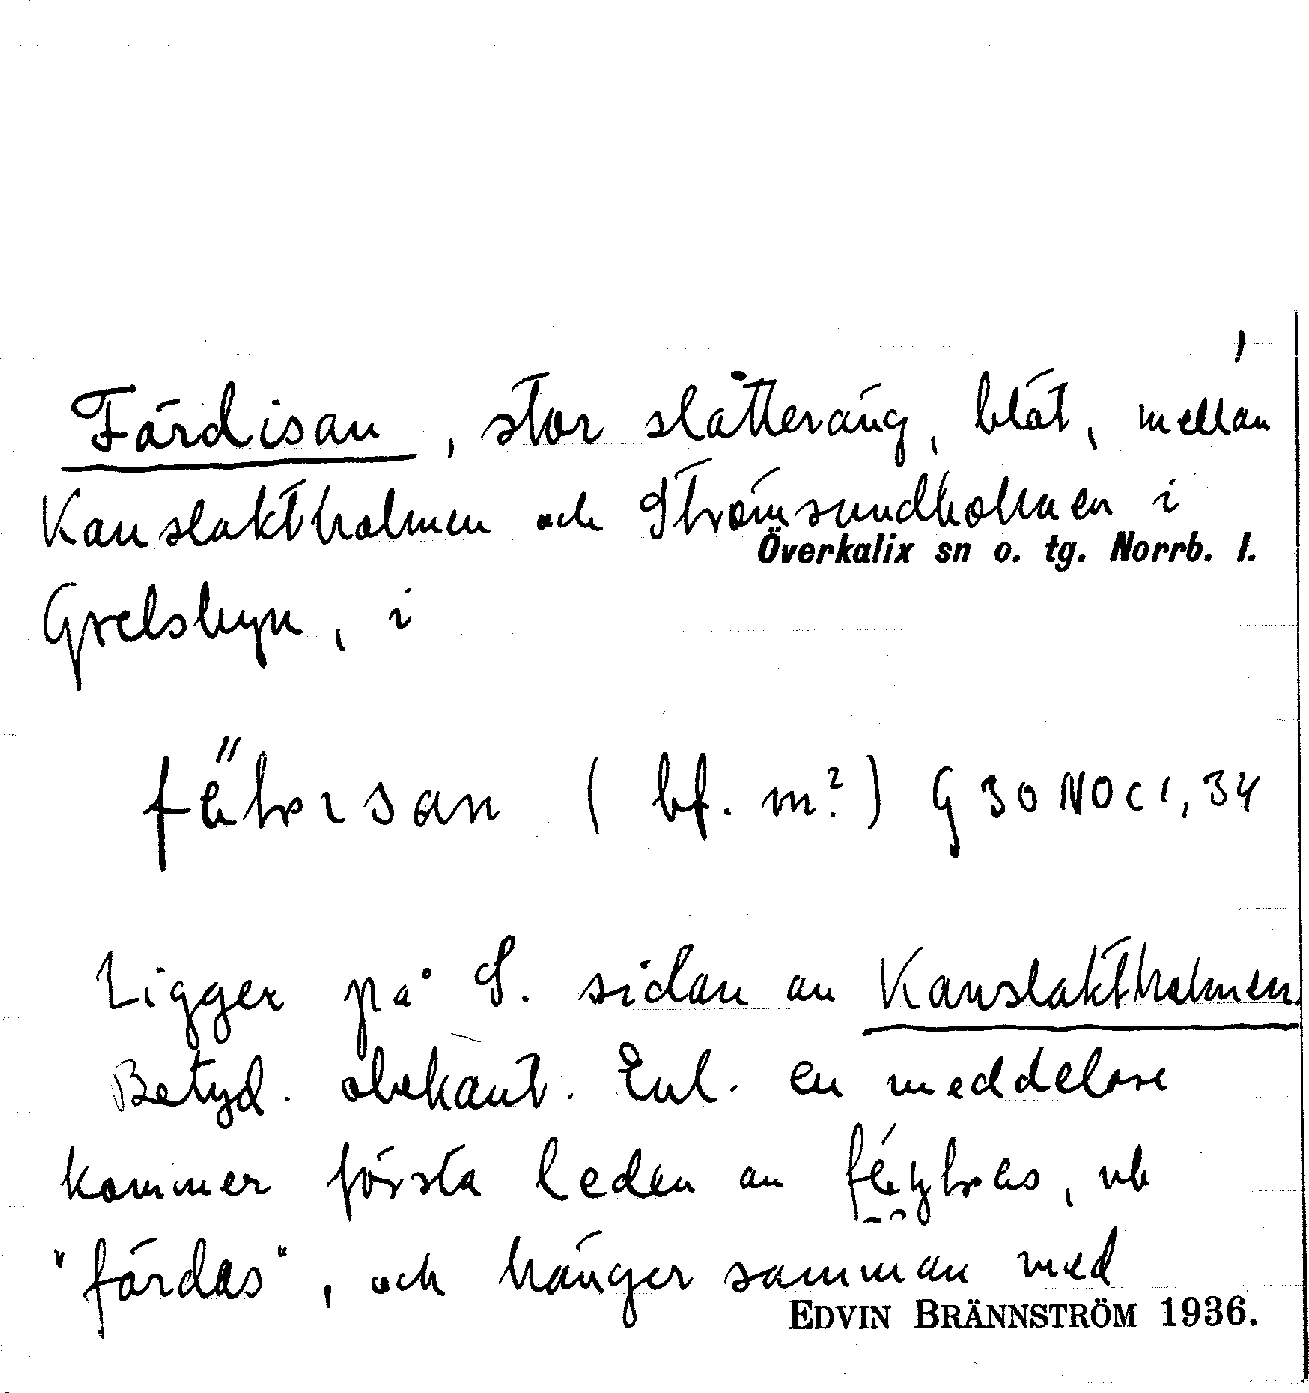 Färdisan, stor slåtteräng, blöt, mellan
Kanslaktholmen och Strömsundholmen i
Överkalix sn o. tg. Norrb. l.
Grelsbyn, i
(bf. m?) G 30 NO c 1, 34
Ligger på S. sidan av Kanslaktholmen.
Betyd. obekant. Enl. en meddelare
kommer första leden av vb
"färdas", och hänger samman med
EDVIN BRÄNNSTRÖM 1936.